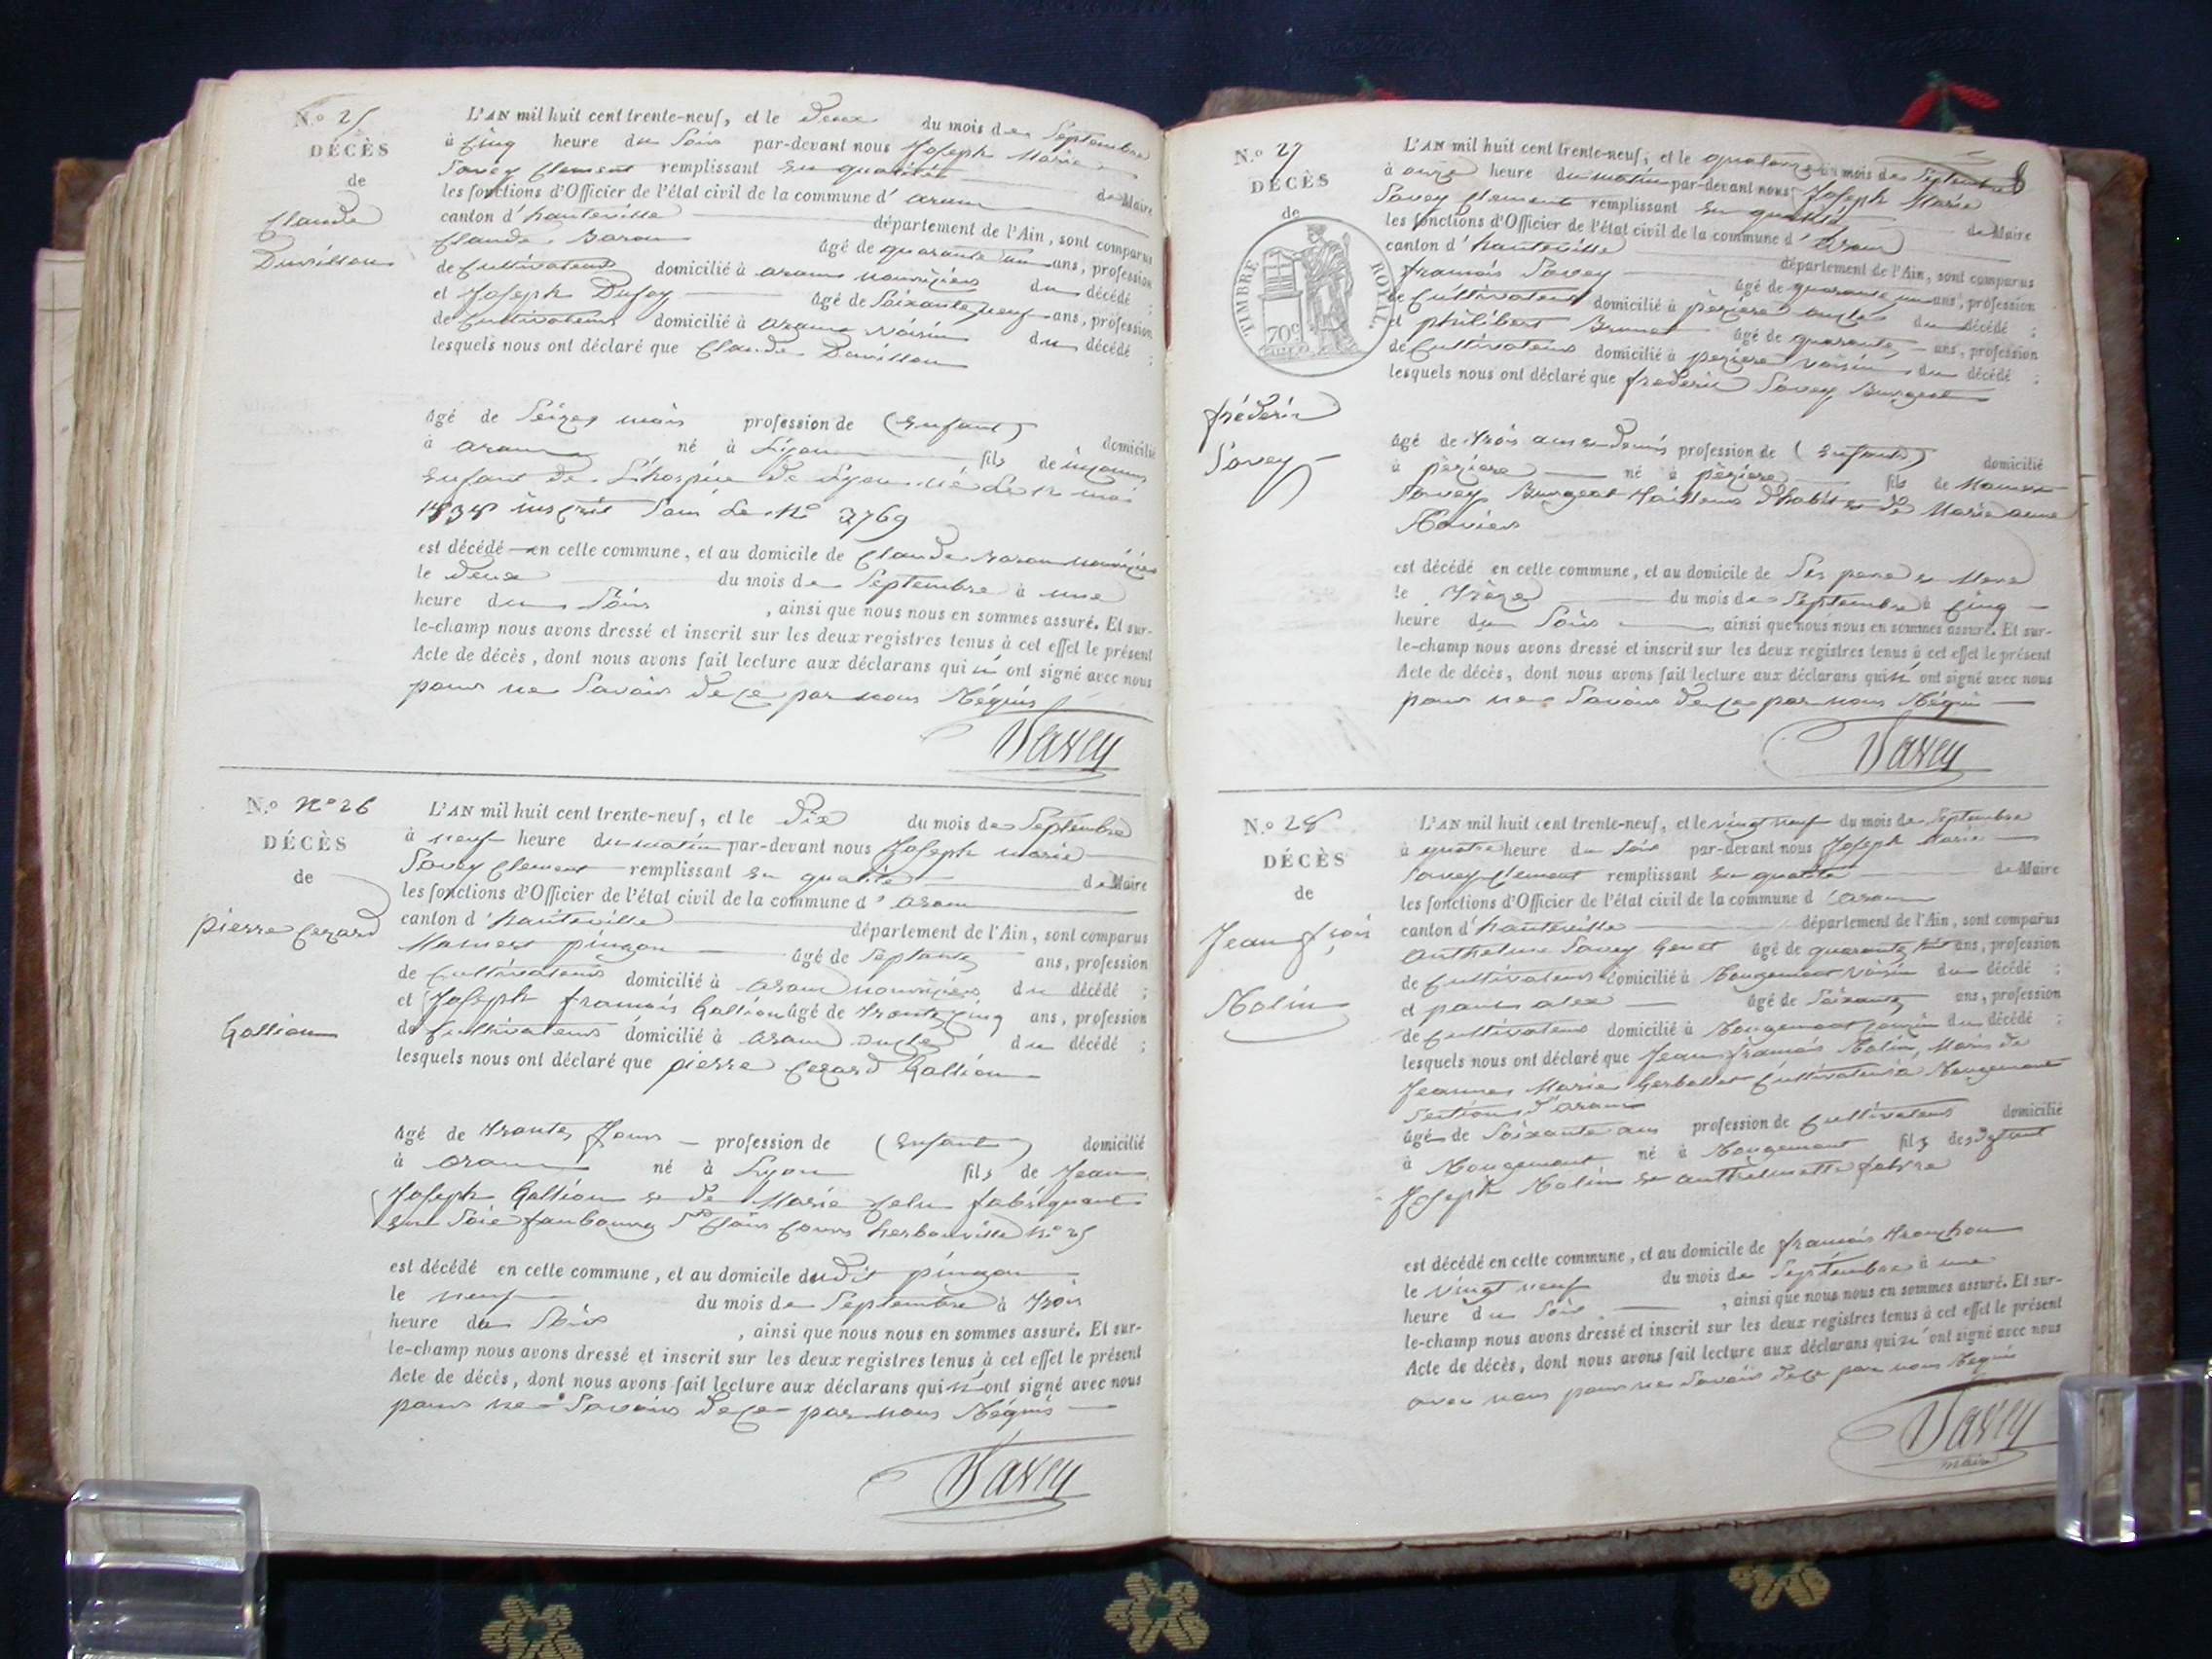 N.o 25
DÉCÈS
de
Claude
Duvillon
L'AN mil huit cent trente-neuf, et le deux du mois de Septembre
à Cinq heure du Soir par-devant nous Joseph Marie
Savey Clement remplissant en qualité de Maire
les fonctions d'Officier de l'état civil de la commune d' aranc
canton d' hauteville département de l'Ain, sont comparus
Claude Baron âgé de quarante un ans, profession
de Cultivateur domicilié à aranc nourricier du décédé ;
et Joseph Dufay âgé de Soixante neuf ans, profession
de Cultivateur domicilié à aranc voisin du décédé ;
lesquels nous ont déclaré que Claude Duvillon
âgé de Seizes mois profession de (Enfant) domicilié
à aranc né à Lyon fils de inconnus
Enfant de L'hospice de Lyon né le 12 mai
1838 inscrit Sous Le No 3769
est décédé en cette commune, et au domicile de Claude Baron nourricier
le deux du mois de Septembre à une
heure du Soir , ainsi que nous nous en sommes assuré. Et sur-
le-champ nous avons dressé et inscrit sur les deux registres tenus à cet effet le présent
Acte de décès, dont nous avons fait lecture aux déclarans qui n' ont signé avec nous
pour ne Savoir de ce par nous Réquis
Savey
N.o No 26
DÉCÈS
de
pierre Cezard
Gallion
L'AN mil huit cent trente-neuf, et le Dix du mois de Septembre
à neuf heure du matin par-devant nous Joseph marie
Savey Clement remplissant en qualité de Maire
les fonctions d'Officier de l'état civil de la commune d' aranc
canton d' hauteville département de l'Ain, sont comparus
Mamert pingon âgé de Septante ans, profession
de Cultivateur domicilié à aranc nourricier du décédé ;
et Joseph francois Gallion âgé de trente Cinq ans, profession
de Cultivateur domicilié à aranc oncle du décédé ;
lesquels nous ont déclaré que pierre Cezard Gallion
âgé de trente Jours profession de (Enfant) domicilié
à aranc né à Lyon fils de Jean
Joseph Gallion et de Marie fabriquant
en Soie faubourg St Clair Cours herbouville No 25
est décédé en cette commune, et au domicile dudit pingon
le neuf du mois de Septembre à trois
heure du Soir , ainsi que nous nous en sommes assuré. Et sur-
le-champ nous avons dressé et inscrit sur les deux registres tenus à cet effet le présent
Acte de décès, dont nous avons fait lecture aux déclarans qui n' ont signé avec nous
pour ne Savoir de ce par nous Réquis
Savey
8
N.o 27
DÉCÈS
de
TIMBRE ROYAL.
70c
fréderic
Savey
L'AN mil huit cent trente-neuf, et le quatorze du mois de Septembre
à onze heure du matin par-devant nous Joseph Marie
Savey Clement remplissant en qualité de Maire
les fonctions d'Officier de l'état civil de la commune d' Aranc
canton d' hauteville département de l'Ain, sont comparus
francois Savey âgé de quarante un ans, profession
de Cultivateur domicilié à pèziere oncle du décédé ;
et philibert Brunet âgé de quarante ans, profession
de Cultivateur domicilié à peziere voisin du décédé ;
lesquels nous ont déclaré que frederic Savey Burgeat
âgé de trois ans et demis profession de (Enfant) domicilié
à pèziere né à pèziere fils de Mamert
Savey Burgeat tailleur d'habit et de Marie anne
est décédé en cette commune, et au domicile de Ses pere et Mere
le treize du mois de Septembre à Cinq
heure du Soir , ainsi que nous nous en sommes assuré. Et sur-
le-champ nous avons dressé et inscrit sur les deux registres tenus à cet effet le présent
Acte de décès, dont nous avons fait lecture aux déclarans qui n' ont signé avec nous
pour ne Savoir de ce par nous Réquis
Savey
N.o 28
DÉCÈS
de
Jean fcois
Nolin
L'AN mil huit cent trente-neuf, et le vingt neuf du mois de Septembre
à quatre heure du Soir par-devant nous Joseph Marie
Savey Clement remplissant en qualité de Maire
les fonctions d'Officier de l'état civil de la commune d' aranc
canton d' hauteville département de l'Ain, sont comparus
Anthelme Savey âgé de quarante huit ans, profession
de Cultivateur domicilié à Rougemont voisin du décédé ;
et pours alex âgé de Soixante ans, profession
de Cultivateur domicilié à Rougemont cousin du décédé ;
lesquels nous ont déclaré que Jean francois Nolin, Maris de
Jeanne Marie Gerbollet Cultivateur à Rougemont
Section d'aranc
âgé de Soixante ans profession de Cultivateur domicilié
à Rougemont né à Rougemont fils de défunt
Joseph Nolin et anthelmette fabvre
est décédé en cette commune, et au domicile de francois tronchon
le vingt neuf du mois de Septembre à une
heure du Soir , ainsi que nous nous en sommes assuré. Et sur-
le-champ nous avons dressé et inscrit sur les deux registres tenus à cet effet le présent
Acte de décès, dont nous avons fait lecture aux déclarans qui n' ont signé avec nous
avec nous pour ne Savoir de ce par nous Réquis
Savey
maire